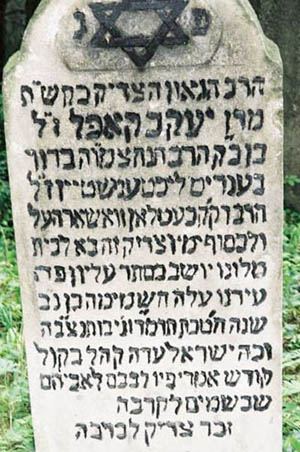 פ נ
הרב הגאון הצדיק בקש״ת
מרן יעקב קאפל ז״ל
בן בק הרב הנה״צ מו״ה ברוך
בענדיט ליכטענשטיין ז״ל
הרב דק״ק בעטלאן וואשארהעל
ולבסוף ימיו צדיק זה בא לבית
מלונו יושב בסתר עליון פה
עירנו עלה השמימה בן נב
שנה תנצ״בה
ישראל עדה קהל בקול
קודש אמרי פיו לבבם לאביהם
שבשמים לקרבה
זכר צדיק לברכה